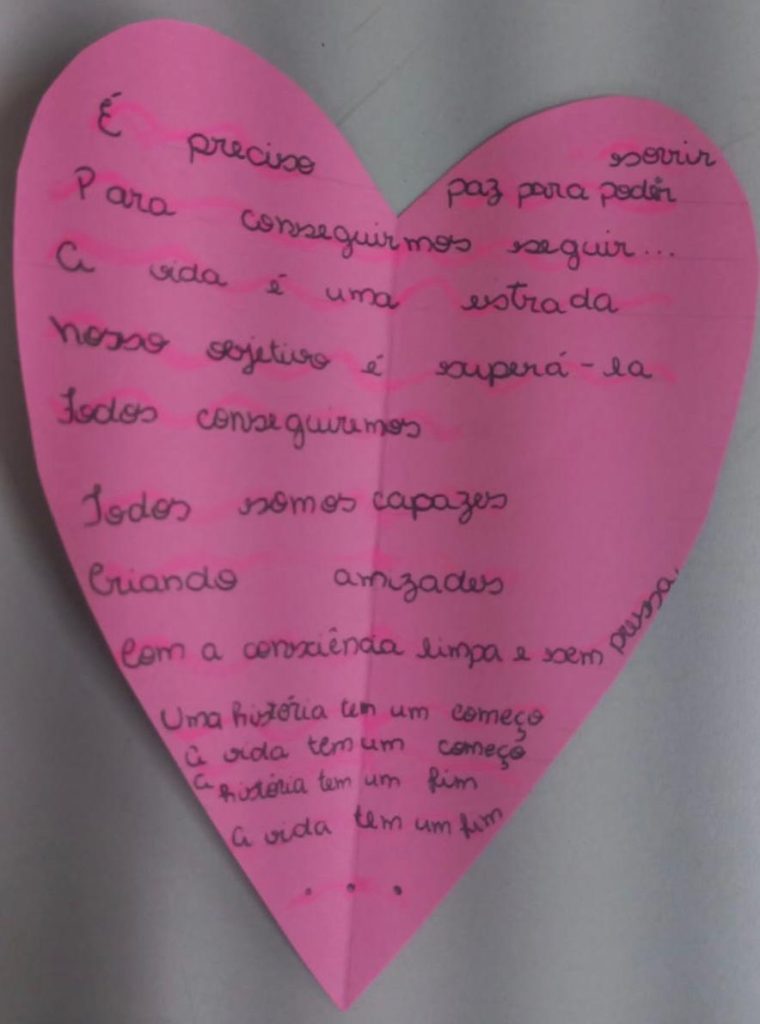 É preciso paz para poder sorrir
Para conseguirmos seguir...
A vida é uma estrada
Nosso objetivo é superá-la
Todos conseguiremos
Todos somos capazes
Criando amizades
Com a consciência limpa e sem pressa.
Uma história tem um começo
A vida têm um começo
A história tem um fim
A vida tem um fim
...